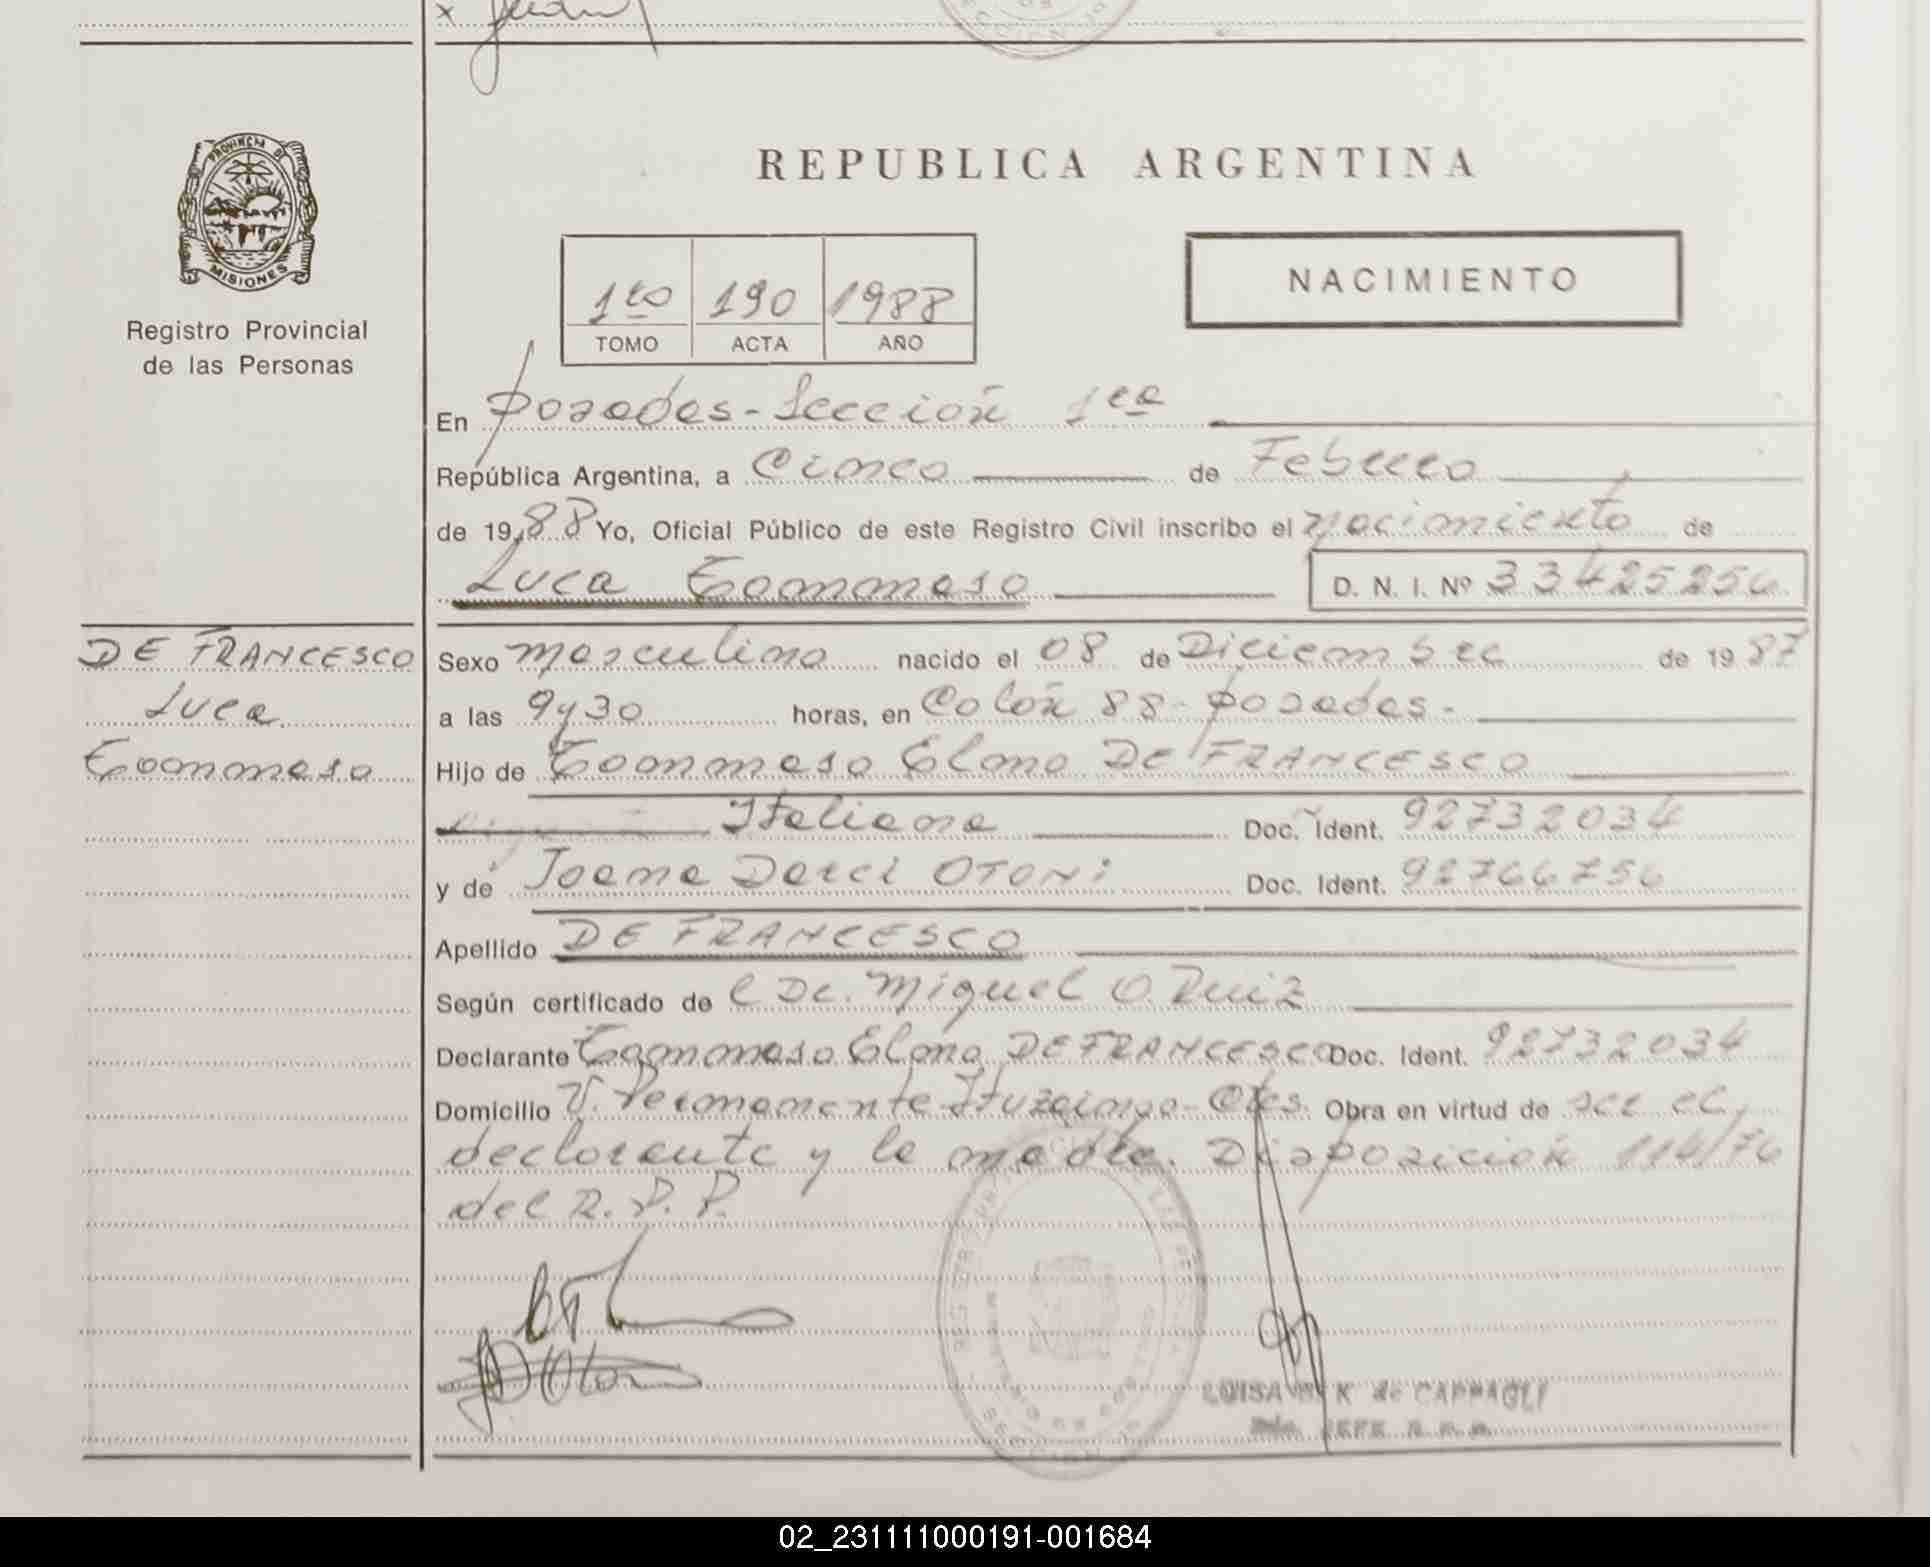 PROVINCIA DE
MISIONES
Registro Provincial
de las Personas
REPUBLICA ARGENTINA
NACIMIENTO
1ro 190 1988
TOMO ACTA AÑO
En Posadas - Sección 1ra
República Argentina, a Cinco de Febrero
de 1988 Yo, Oficial Público de este Registro Civil inscribo el nacimiento de
Luca Tommaso D. N. I. Nº 33425256
DE FRANCESCO
Luca
Tommaso
Sexo masculino nacido el 08 de Diciembre de 1987
a las 9y30 horas, en Colón 88 - Posadas -
Hijo de Tommaso Elmo DE FRANCESCO
Italiana Doc. Ident. 92732034
y de Joana Darci OTONI Doc. Ident. 92766756
Apellido DE FRANCESCO
Según certificado de l Dr. Miguel O. Ruiz
Declarante Tommaso Elmo DE FRANCESCO Doc. Ident. 92732034
Domicilio V. Permanente Ituzaingo - Ctes. Obra en virtud de ser el
declarante y la madre. Disposición 114/76
del R. P. P.
LUISA K de CAPPAGLI
JEFE R. P. P.
02_231111000191-001684